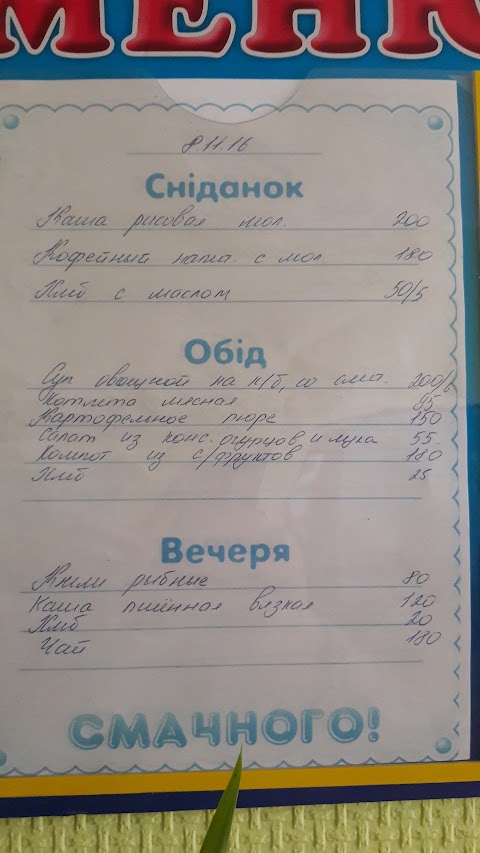 МЕНЮ
8.11.16
Сніданок
Каша рисовая мол. 200
Кофейный напит. с мол 180
Хлеб с маслом 50/5
Обід
Суп овощной на к/б, со сма. 200/
Котлета мясная 95
Картофельное пюре 150
Салат из конс. огурцов и лука 55.
Компот из с/фруктов 180
Хлеб 25
Вечеря
рыбные 80
Каша пшённая вязкая 120
Хлеб 20
Чай 180
СМАЧНОГО!